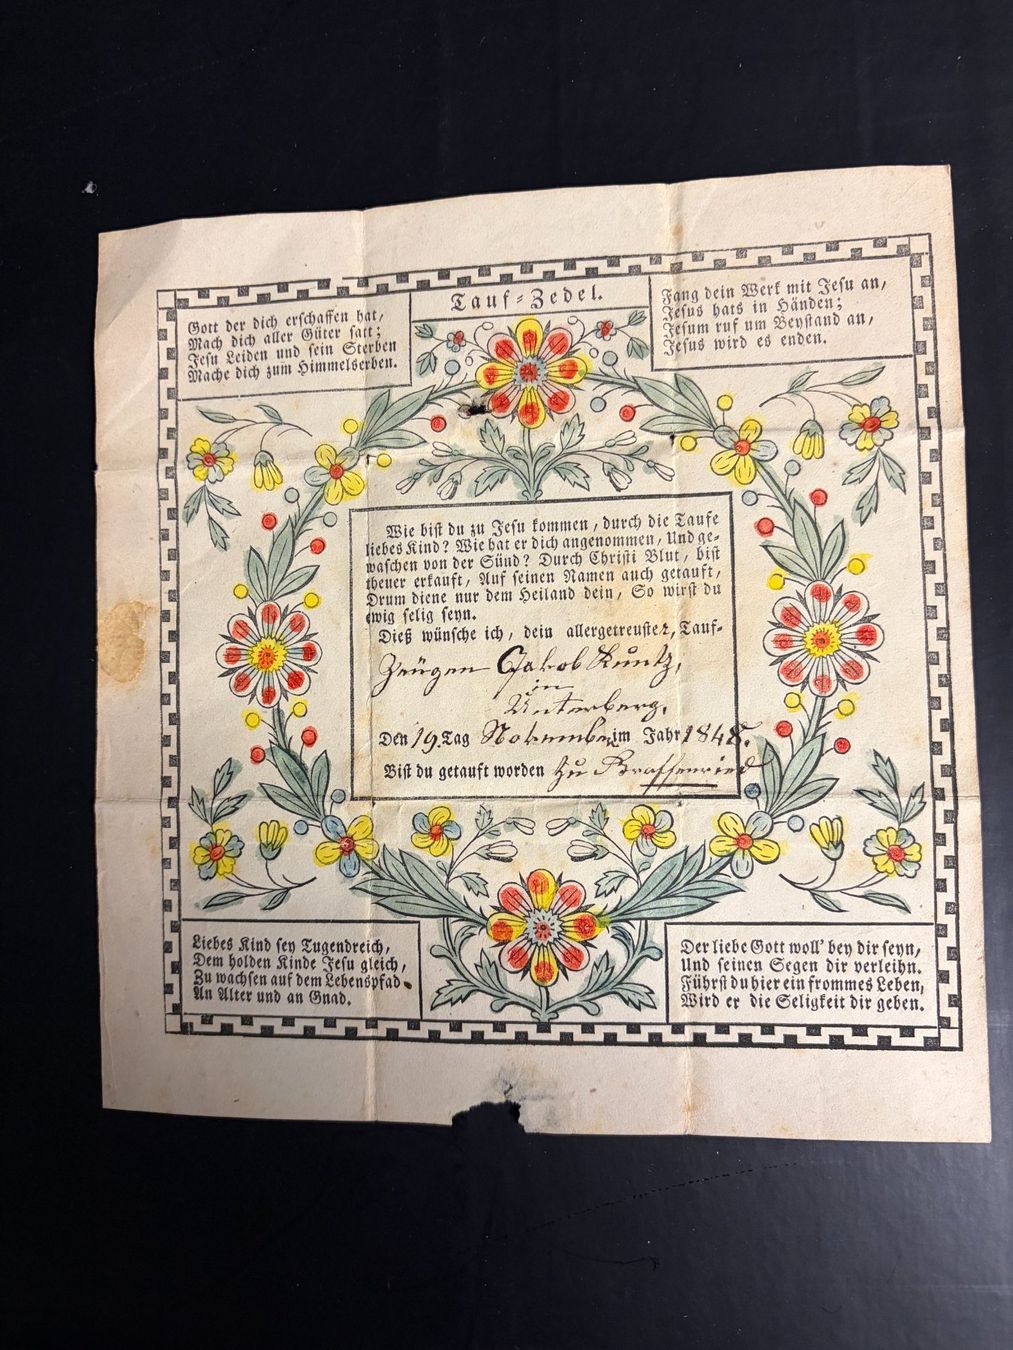 Tauf-Zedel.
Gott der dich erschaffen hat,
Mach dich aller Güter satt;
Jesu Leiden und sein Sterben
Mache dich zum Himmelserben.
Fang dein Werk mit Jesu an,
Jesus hats in Händen;
Jesum ruf um Beystand an,
Jesus wird es enden.
Wie bist du zu Jesu kommen, durch die Taufe
liebes Kind? Wie hat er dich angenommen, Und ge-
waschen von der Sünd? Durch Christi Blut, bist
theuer erkauft, Auf seinen Namen auch getauft,
Drum diene nur dem Heiland dein, So wirst du
ewig selig seyn.
Dieß wünsche ich, dein allergetreuster, Tauf-
Zeügen Jakob Kuntz,
in
Unterberg,
Den 19. Tag November im Jahr 1848.
Bist du getauft worden zu Kraffenried
Liebes Kind sey Tugendreich,
Dem holden Kinde Jesu gleich,
Zu wachsen auf dem Lebenspfad
An Alter und an Gnad.
Der liebe Gott woll' bey dir seyn,
Und seinen Segen dir verleihn.
Führst du hier ein frommes Leben,
Wird er die Seligkeit dir geben.